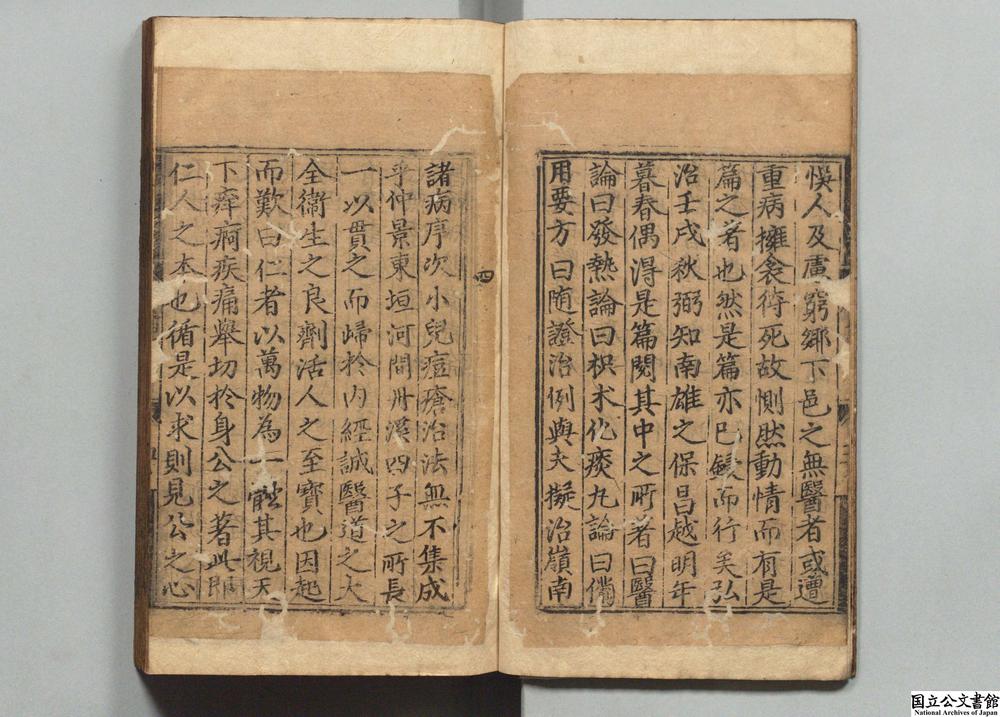 悞人及慮窮鄉下邑之無醫者或遭
重病擁衾待死故惻然動情而有是
篇之著也然是篇亦已鋟而行矣弘
治壬戌秋弼知南雄之保昌越明年
暮春偶得是篇閱其中之所著曰醫
論曰發熱論曰枳朮化痰丸論曰備
用要方曰随證治例與夫擬治嶺南
諸病序次小兒痘瘡治法無不集成
乎仲景東垣河間丹溪四子之所長
一以貫之而歸於內經誠醫道之大
全衞生之良劑活人之至寶也因起
而歎曰仁者以萬物為一體其視天
下痒痾疾痛舉切於身公之著此即
仁人之本也循是以求則見公之心
四
国立公文書館
National Archives of Japan